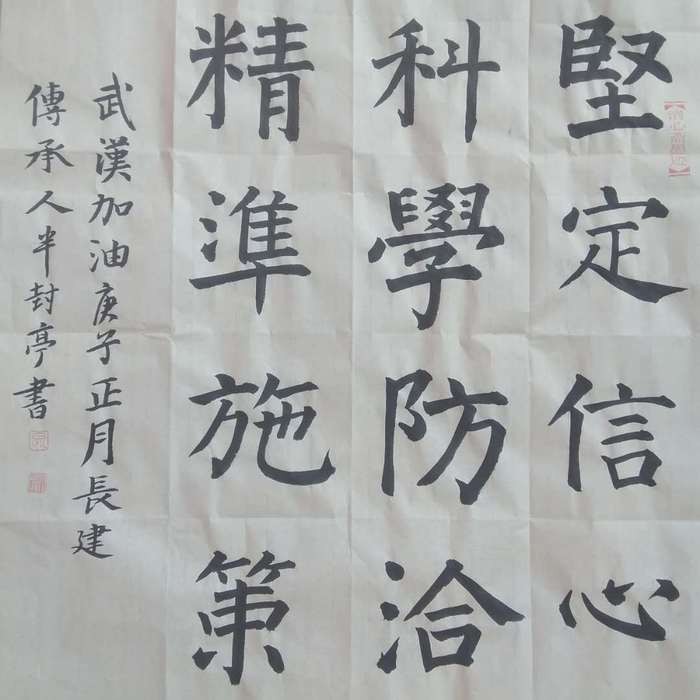 堅定信心
科學防洽
精準施策
武漢加油庚子正月長建
傳承人半封亭書